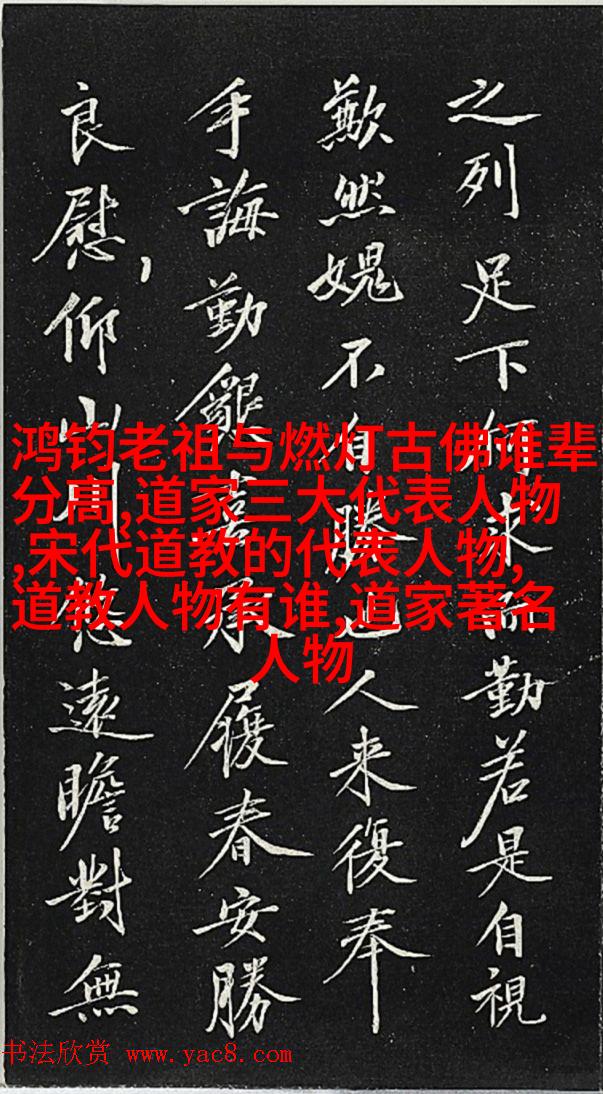 之列足下何求而勤若是自視
歉然媿不自勝也人来復奉
手誨勤懇喜承履春安勝
良慰，仰山川悠遠瞻對無
鸿钧老祖与燃灯古佛谁辈
分高,道家三大代表人物
,宋代道教的代表人物,
道教人物有谁,道家著名
人物
书法欣赏 www.yac8.com